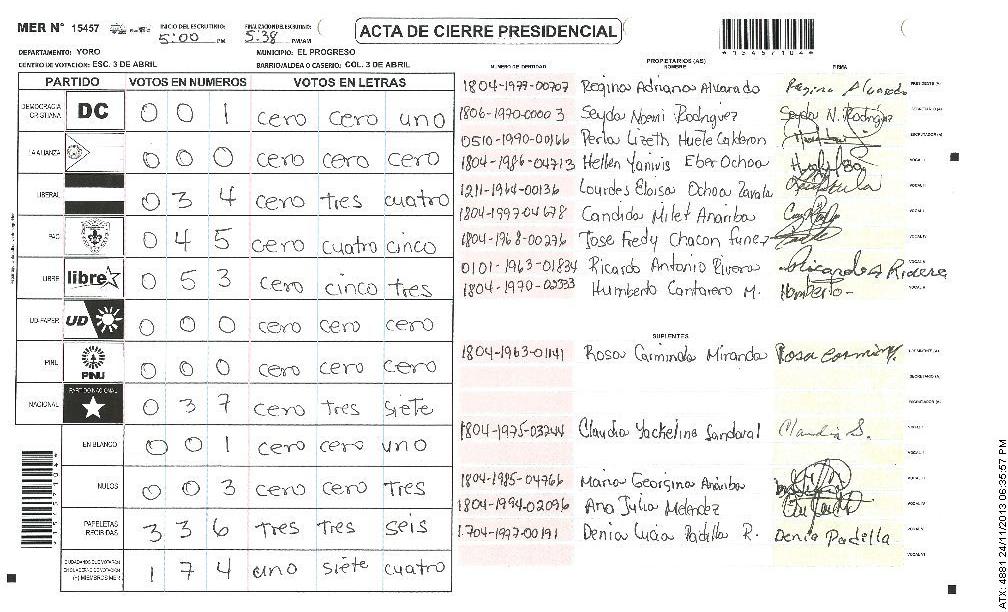 MER N° 15457 INICIO DEL ESCRUTINIO: 5:00 PM FINALIZACION DEL ESCRUTINIO: 5:38 PM/AM
ACTA DE CIERRE PRESIDENCIAL
*15457104*
DEPARTAMENTO: YORO MUNICIPIO: EL PROGRESO
CENTRO DE VOTACION: ESC. 3 DE ABRIL BARRIO/ALDEA O CASERIO: COL. 3 DE ABRIL
PARTIDO VOTOS EN NUMEROS VOTOS EN LETRAS
DEMOCRACIA CRISTIANA DC 0 0 1 cero cero uno
LA ALIANZA 0 0 0 cero cero cero
LIBERAL 0 3 4 cero tres cuatro
PAC 0 4 5 cero cuatro cinco
LIBRE libre 0 5 3 cero cinco tres
UD-FAPER UD 0 0 0 cero cero cero
PINU PINU 0 0 0 cero cero cero
NACIONAL PARTIDO NACIONAL 0 3 7 cero tres siete
EN BLANCO 0 0 1 cero cero uno
NULOS 0 0 3 cero cero tres
PAPELETAS RECIBIDAS 3 3 6 tres tres seis
CIUDADANOS QUE VOTARON EN CUADERNO DE VOTACION (+) MIEMBROS MER 1 7 4 uno siete cuatro
NUMERO DE IDENTIDAD PROPIETARIOS (AS) NOMBRE FIRMA
1804-1979-00707 Regina Adriana Alvarado Regina Alvarado PRESIDENTE (A)
1806-1970-0000 3 Seyda Noemi Rodriguez Seyda N. Rodríguez SECRETARIO (A)
0510-1990-00166 Perla Lizeth Huete Calderon ESCRUTADOR (A)
1804-1986-04713 Hellen Yanivis Eber Ochoa VOCAL I
1211-1964-00136 Lourdes Eloisa Ochoa Zavala VOCAL II
1804-1997-04678 Candida Milet Anariba
1804-1968-00276 Jose Fredy Chacon Funez VOCAL IV
0101-1963-01834 Ricardo Antonio Rivera Ricardo A Rivera
1804-1970-02333 Humberto Cantarero M. Humberto
SUPLENTES
1804-1963-01141 Rosa Carminda Miranda Rosa Carmin M. PRESIDENTE (A)
SECRETARIO (A)
ESCRUTADOR (A)
1804-1975-03244 Claudia Yackeline Sandoval Claudia S. VOCAL I
1804-1985-04766 Maria Georgina Anariba
1804-1994-02096 Ana Julia Melendez VOCAL IV
1704-1997-00191 Denia Lucia Padilla R. Denia Padella VOCAL V
VOCAL VI
ATX: 4881 24/11/2013 06:35:57 PM